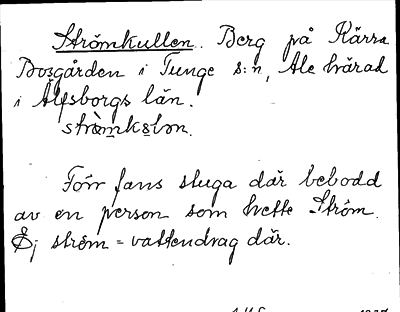 Strömkullen. Berg på Kärra
Bosgården i Tunge s:n, Ale härad
i Älfsborgs län.
Förr fans stuga där bebodd
av en person som hette Ström.
Ej ström = vattendrag där.